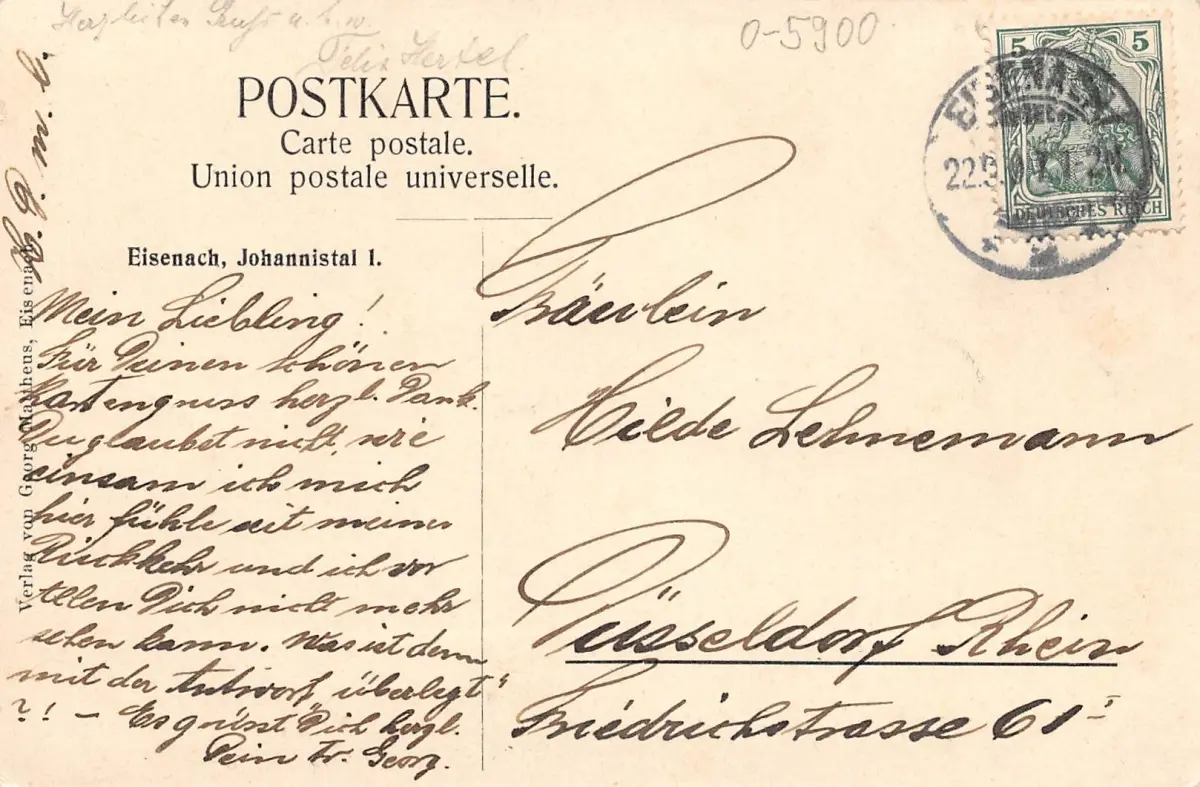 Herzlichen Gruß u. s. w.
Felix Hertel.
0-5900
POSTKARTE.
Carte postale.
Union postale universelle.
5 5
DEUTSCHES REICH
EISENACH
22.9.07. 1-2N
Eisenach, Johannistal 1.
Verlag von Georg Mattheus, Eisenach
Mein Liebling!
Für Deinen schönen
Kartengruss herzl. Dank.
Du glaubst nicht, wie
einsam ich mich
hier fühle seit meiner
Rückkehr und ich vor
allem Dich nicht mehr
sehen kann. Was ist denn
mit der Antwort „überlegt“
?! — Es grüsst Dich herzl.
Dein tr. Georg.
Fräulein
Hilde Lehnemann
Düsseldorf Rhein
Friedrichstrasse 61 I